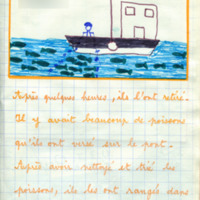 Après quelques heures, ils l'ont retiré.
Il y avait beaucoup de poissons
qu'ils ont versé sur le pont.
Après avoir nettoyé et trié les
poissons, ils les ont rangés dans